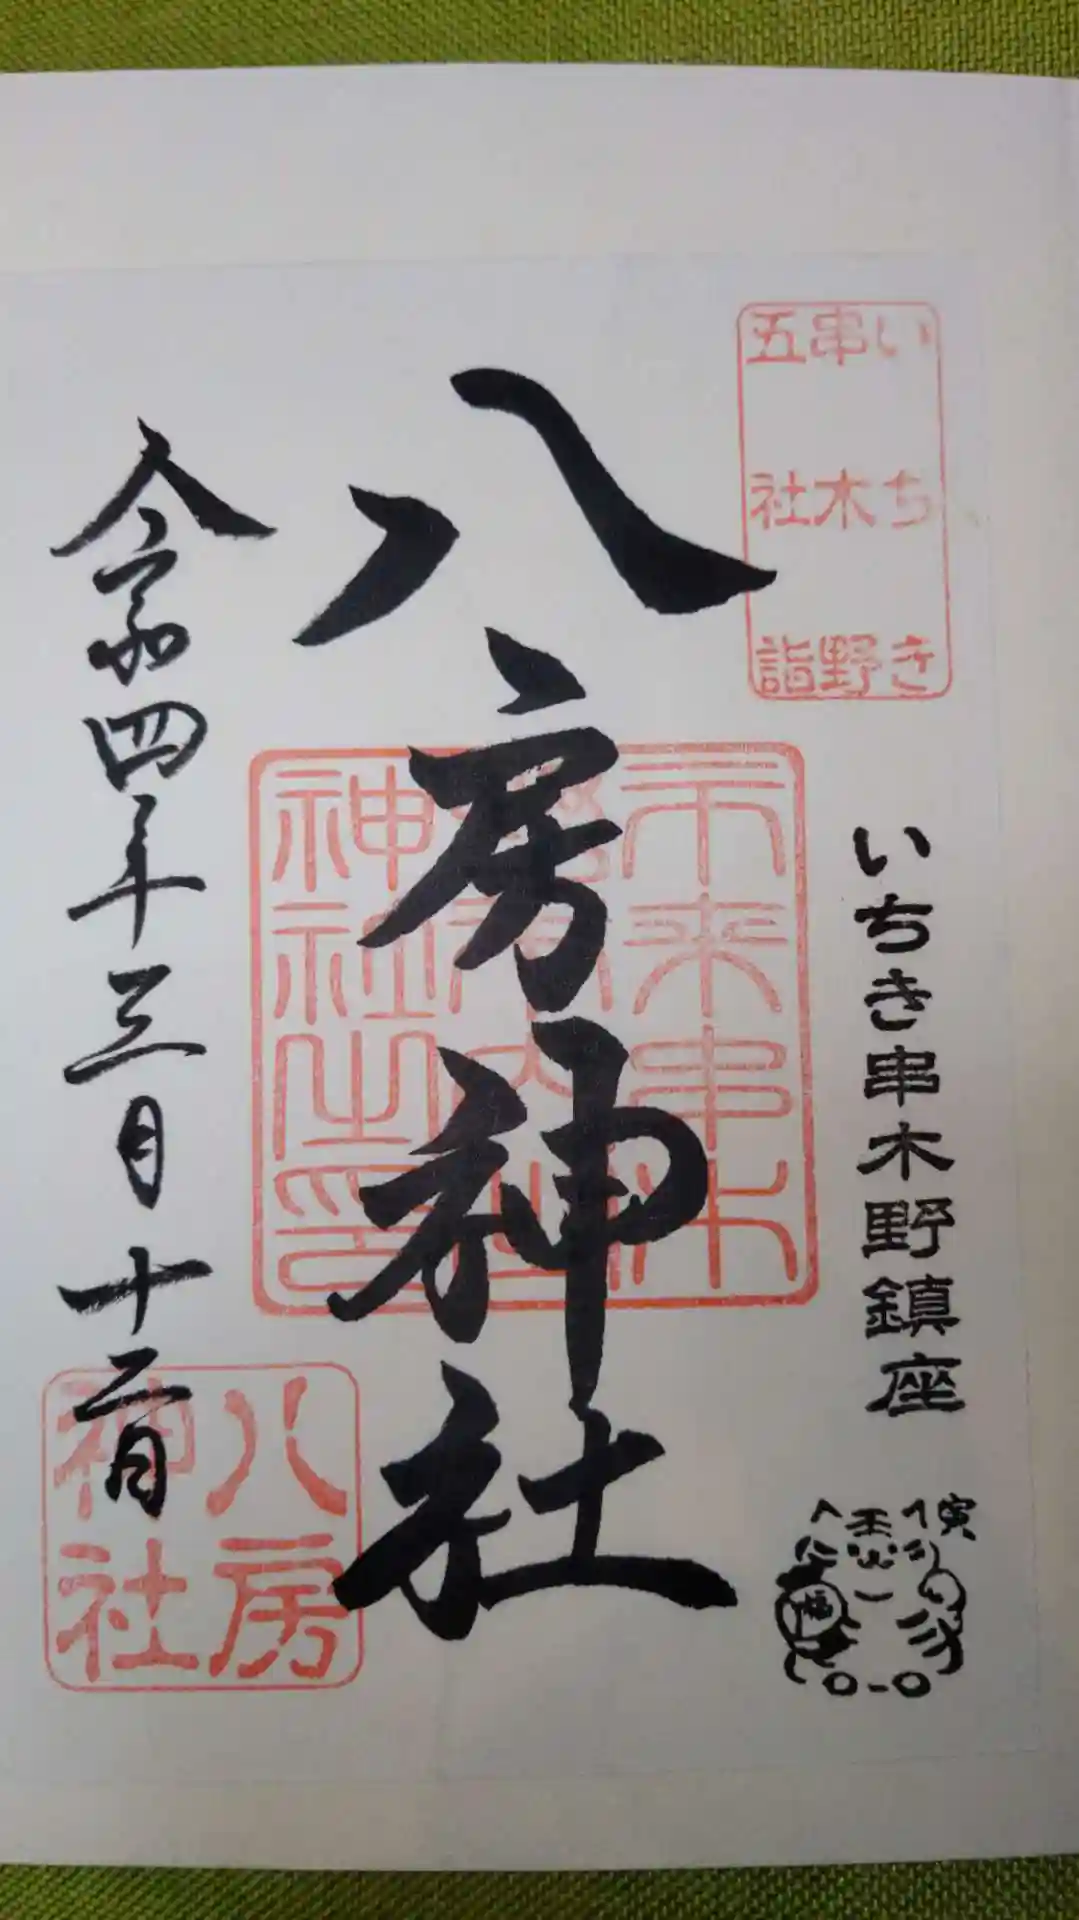 いちき
串木野
五社詣
いちき串木野鎮座
寅
八房神社
神社之印
令和四年三月十二日
八房
神社